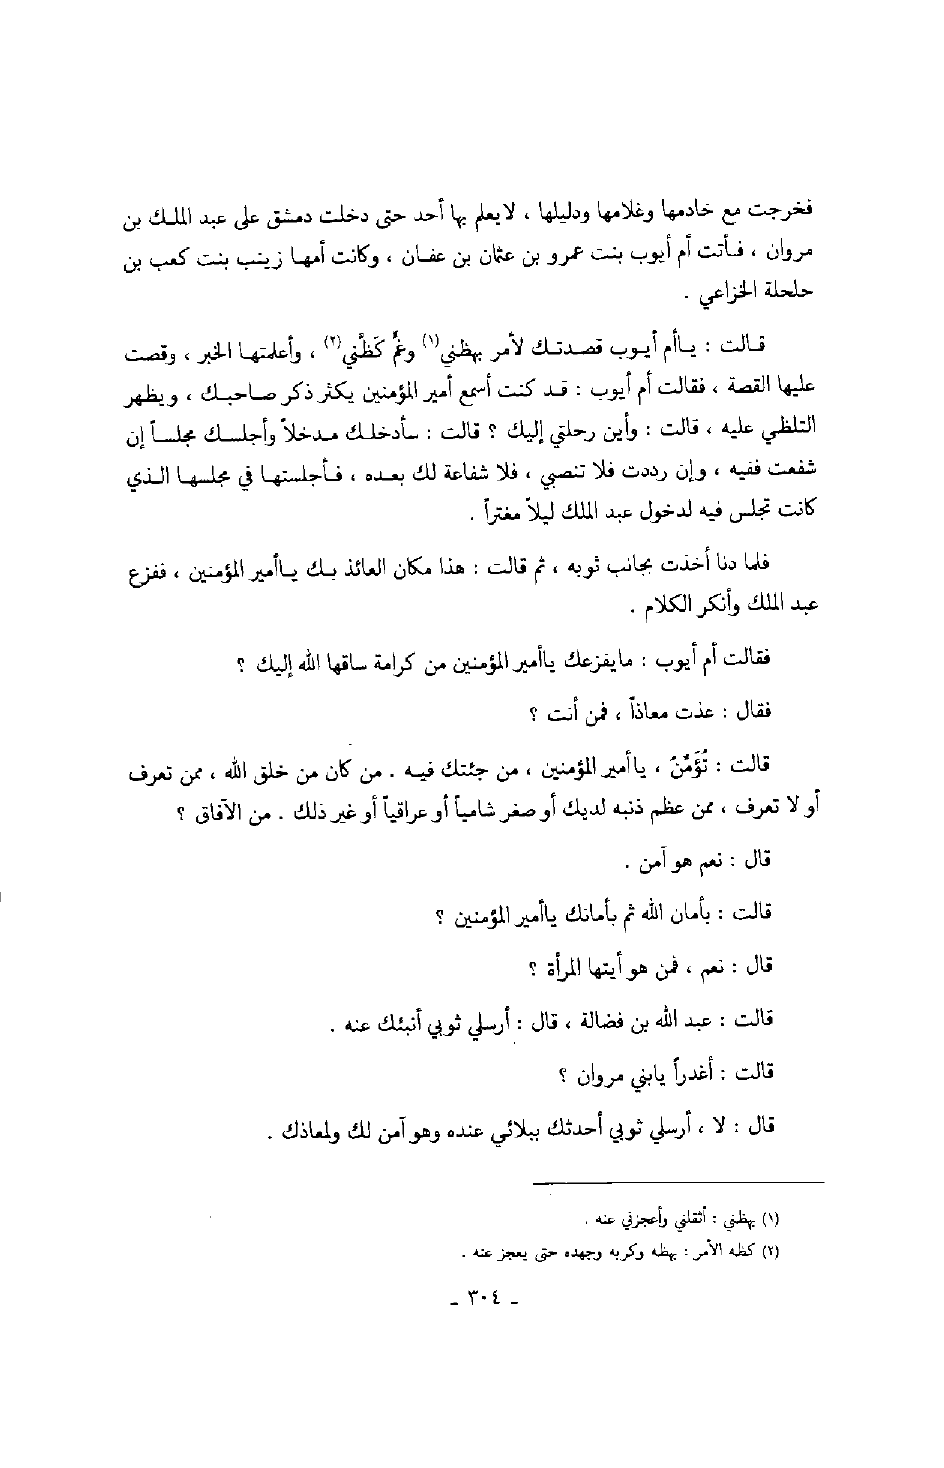 فخرجت مع خادمها وغلامها ودليلها ، لايعلم بها أحد حتى دخلت دمشق على عبد الملك بن
مروان ، فأتت أم أيوب بنت عمرو بن عثمان بن عفان ، وكانت أمها زينب بنت كعب بن
حلحلة الخزاعي .
قالت : ياأم أيوب قصدتك لأمر بهظني(١) وغمٍّ كَظَّني(٢) ، وأعلمتها الخبر ، وقصت
عليها القصة ، فقالت أم أيوب : قد كنت أسمع أمير المؤمنين يكثر ذكر صاحبك ، ويظهر
التلظي عليه ، قالت : وأين رحلتي إليك ؟ قالت : سأدخلك مدخلاً وأجلسك مجلساً إن
شفعت ففيه ، وإن رددت فلا تنصبي ، فلا شفاعة لك بعده ، فأجلستها في مجلسها الذي
كانت تجلس فيه لدخول عبد الملك ليلاً مغتراً .
فلما دنا أخذت بجانب ثوبه ، ثم قالت : هذا مكان العائذ بك ياأمير المؤمنين ، ففزع
عبد الملك وأنكر الكلام .
فقالت أم أيوب : مايفزعك ياأمير المؤمنين من كرامة ساقها الله إليك ؟
فقال : عذت معاذاً ، فمن أنت ؟
قالت : تُؤَمِّنُ ، ياأمير المؤمنين ، من جئتك فيه . من كان من خلق الله ، ممن تعرف
أو لا تعرف ، ممن عظم ذنبه لديك أو صغر شامياً أو عراقياً أو غير ذلك . من الآفاق ؟
قال : نعم هو آمن .
قالت : بأمان الله ثم بأمانك ياأمير المؤمنين ؟
قال : نعم ، فمن هو أيتها المرأة ؟
قالت : عبد الله بن فضالة ، قال : أرسلي ثوبي أنبئك عنه .
قالت : أغدراً يابني مروان ؟
قال : لا ، أرسلي ثوبي أحدثك ببلائي عنده وهو آمن لك ولمعاذك .
(١) بهظني : أثقلني وأعجزني عنه .
(٢) كظه الأمر : بهظه وكربه وجهده حتى يعجز عنه .
ـ ٣٠٤ ـ